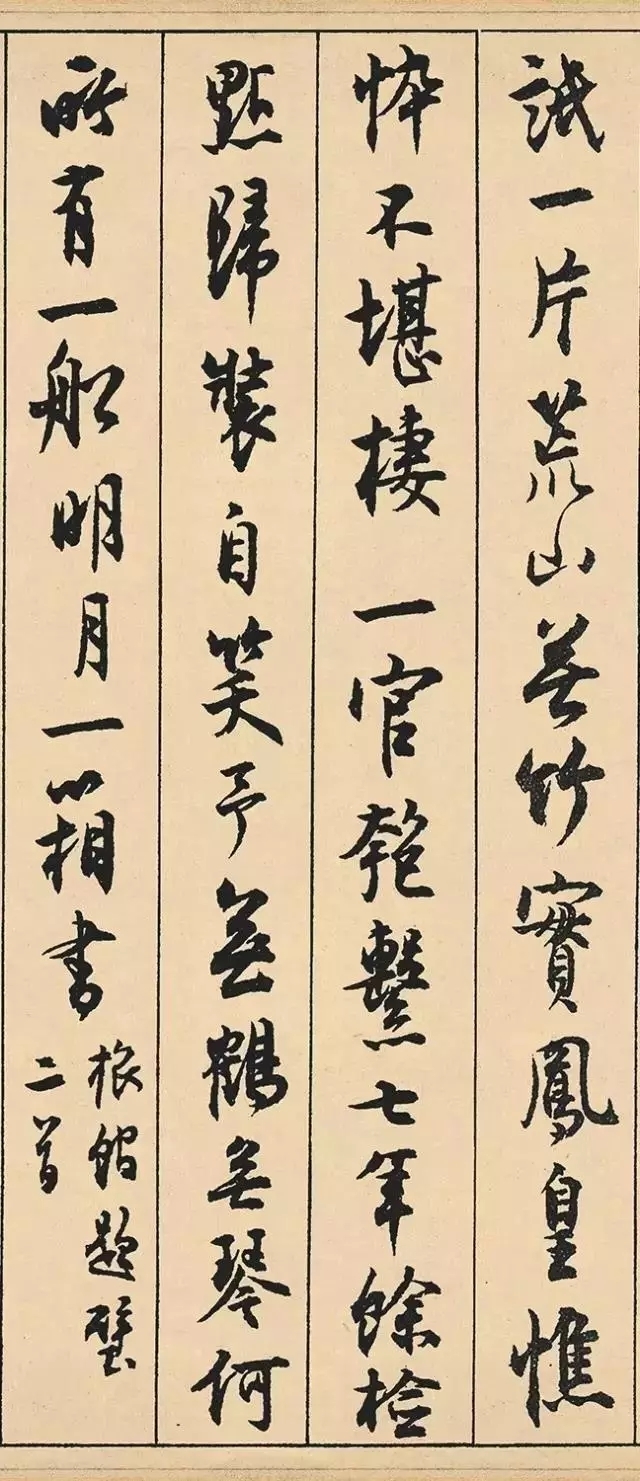 識一片荒山無竹實鳳皇憔
悴不堪棲 一官匏繫七年餘檢
點歸裝自笑予無鶴無琴何
所有一船明月一箱書
旅館題壁
二首